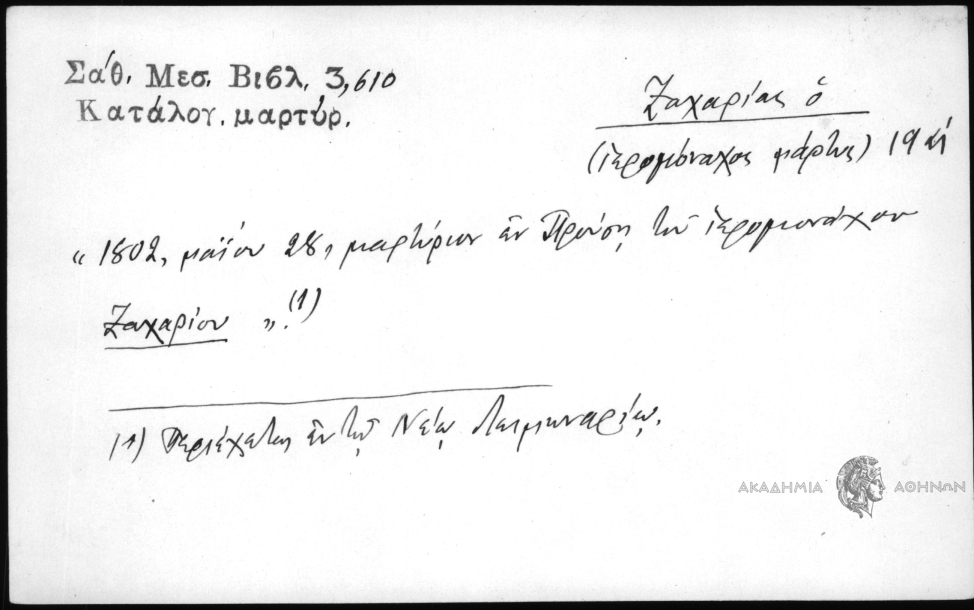 Σάθ. Μεσ. Βιβλ. 3,610
Κατάλογ. μαρτύρ.
Ζαχαρίας ὁ
(ἱερομόναχος μάρτυς) 19
" 1802, μαΐου 28, μαρτύριον ἐν Προύσῃ τοῦ ἱερομονάχου
Ζαχαρίου „.(1)
(1) Περιέχεται ἐν τῷ Νέῳ Λειμωναρίῳ.
ΑΚΑΔΗΜΙΑ ΑΘΗΝΩΝ